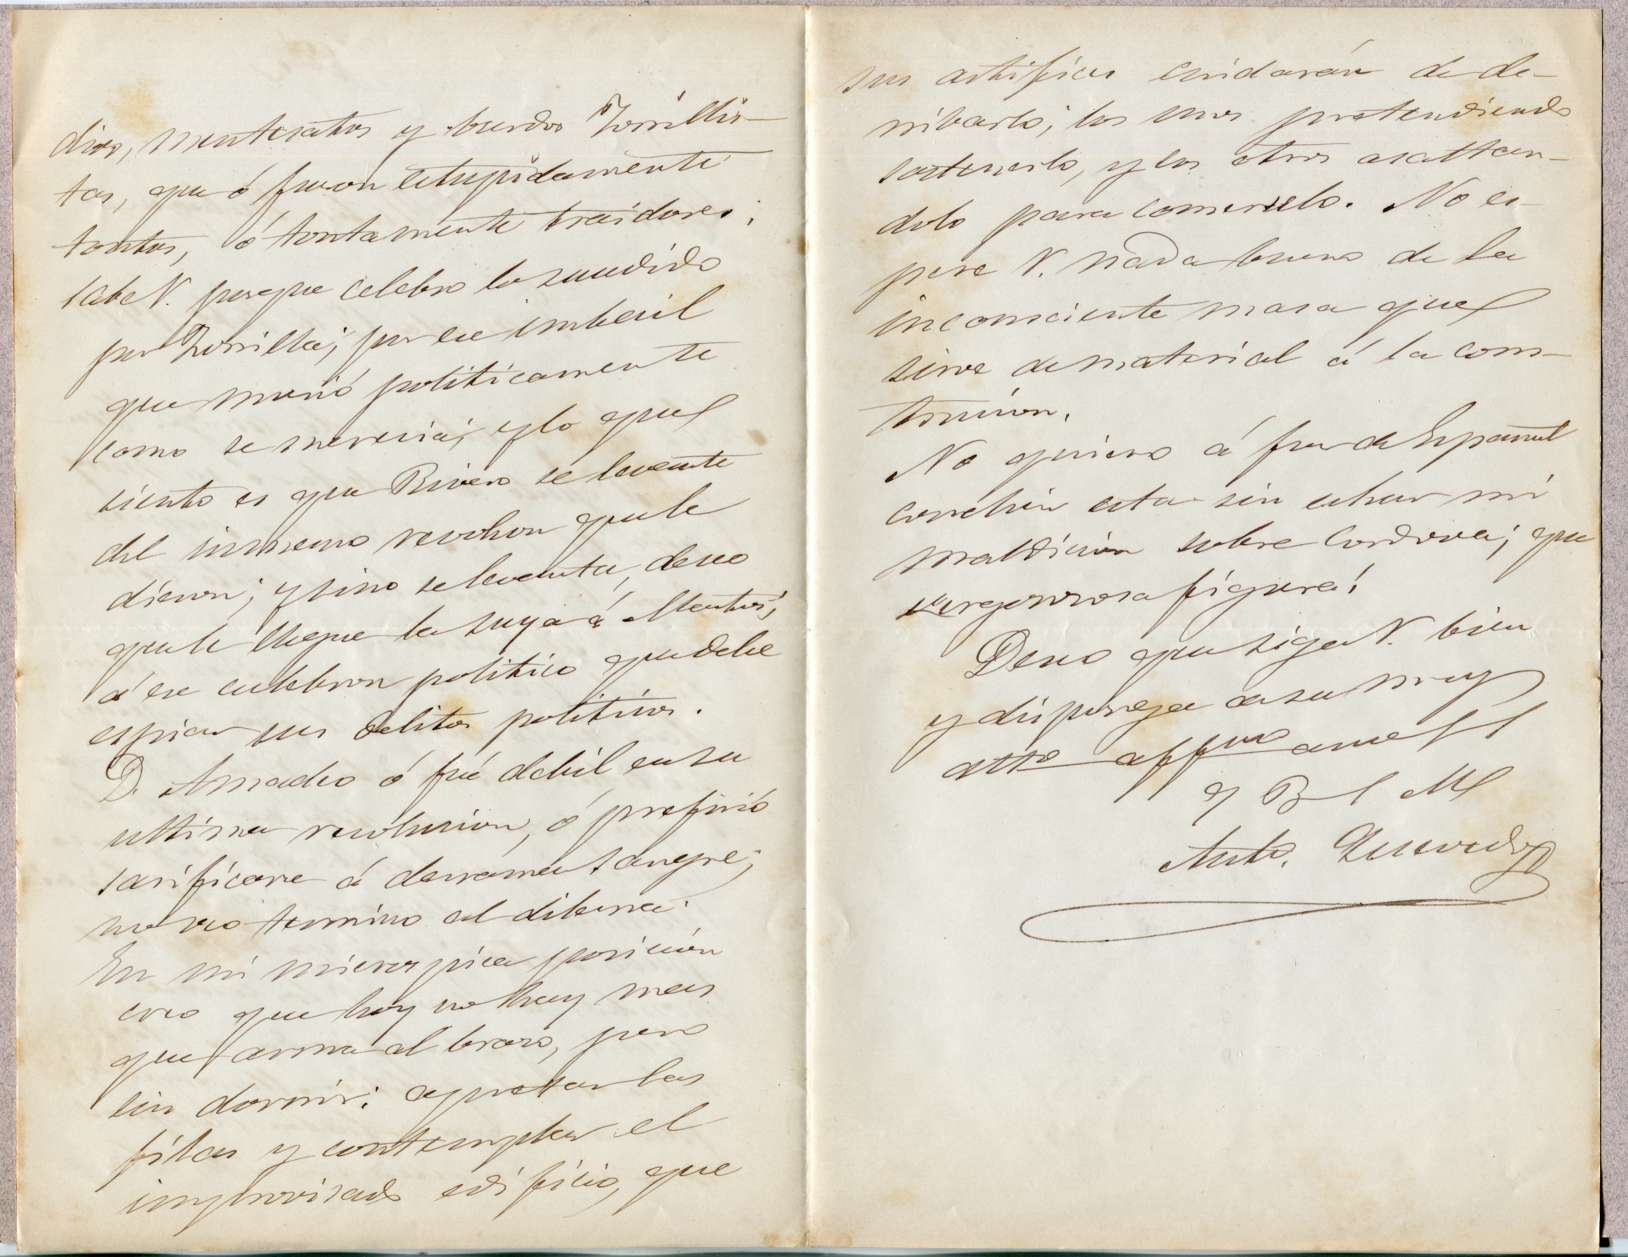 dios, mentecatos y burdos Zorrillis-
tas, que ó fueron estupidamente
tontos, ó tontamente traidores;
sabe V. porque celebro lo sucedido
por Zorrilla; por ese imbecil
que murió politicamente
como se merecia; y lo que
siento es que Rivero se levante
del inmenso revolcon que le
dieron; y sino se levanta, deseo
que le llegue la suya á Martos;
á ese culebron politico que debe
espiar sus delitos politicos.
D. Amadeo ó fué debil en su
ultima resolucion, ó prefirió
sacrificarse á derramar sangre;
no veo termino al dilema.
En mi microspica posicion
creo que hoy no hay mas
que arma al brazo, pero
sin dormir: apretar las
filas y contemplar el
improvisado edificio, que
sus artifices cuidarán de de-
rribarlo; los unos pretendiendo
sostenerlo, y los otros asaltan-
dolo para comerselo. No es-
pere V. nada bueno de la
inconsciente masa que
sirve de material á la cons-
truccion.
No quiero á fuer de Español
concluir esta sin echar mi
maldicion sobre Cordova; que
vergonzosa figura!
Deseo que siga V. bien
y disponga de su muy
atto affmo
y B S M
Anto. Quevedo